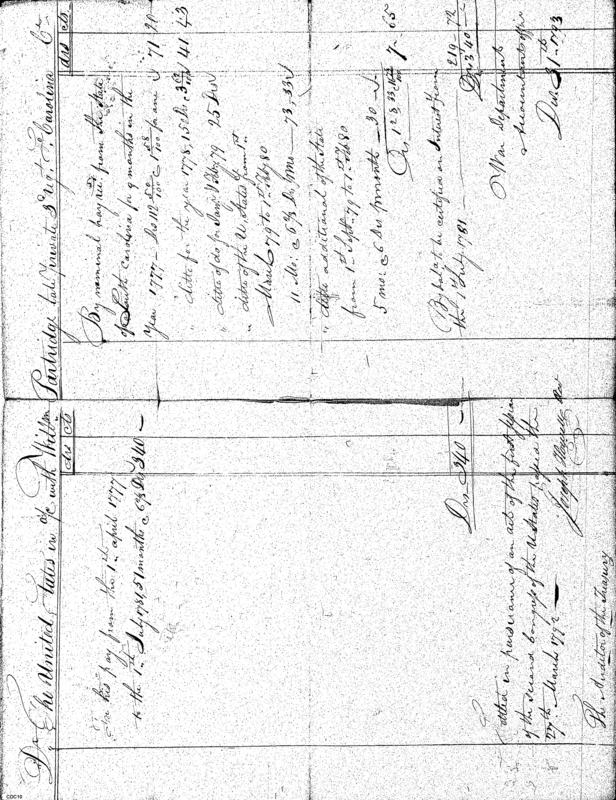 Dr The United States in a/c with Willm Partridge late private 3d Regt So Carolina Cr
drs cts
To his pay from the 1st april 1777
to the 1st July 1781, 51 months @ 6⅔ Drs 340 —
Drs 340 —
Settled in pursuance of an act of the first session
of the second Congress of the U States passed the
27th March 1792 —
Joseph Howell
The Auditor of the Treasury
drs cts
By nominal pay recd from the State
of South Carolina for 9 months in the
Year 1777 — Drs 71 20
" ditto for the year 1778, 41 43
" ditto of do for Jany & Feby 79 25 Drs
" ditto of the U. States from 1st
March 79 to 1st Feb 80
11 Mos. @ 6⅔ Drs pr Mo — 73,33
" ditto additional of the State
from 1st Sept. 79 to 1st Feb 80
5 mos: @ 6 Drs pr month — 30
Drs 128 33 7 — 65
By bale to be certified on Interest from
the 1st July 1781 — 219 72
Drs 340 —
War Department
Accountants office
Dec 31st 1793
CDC10